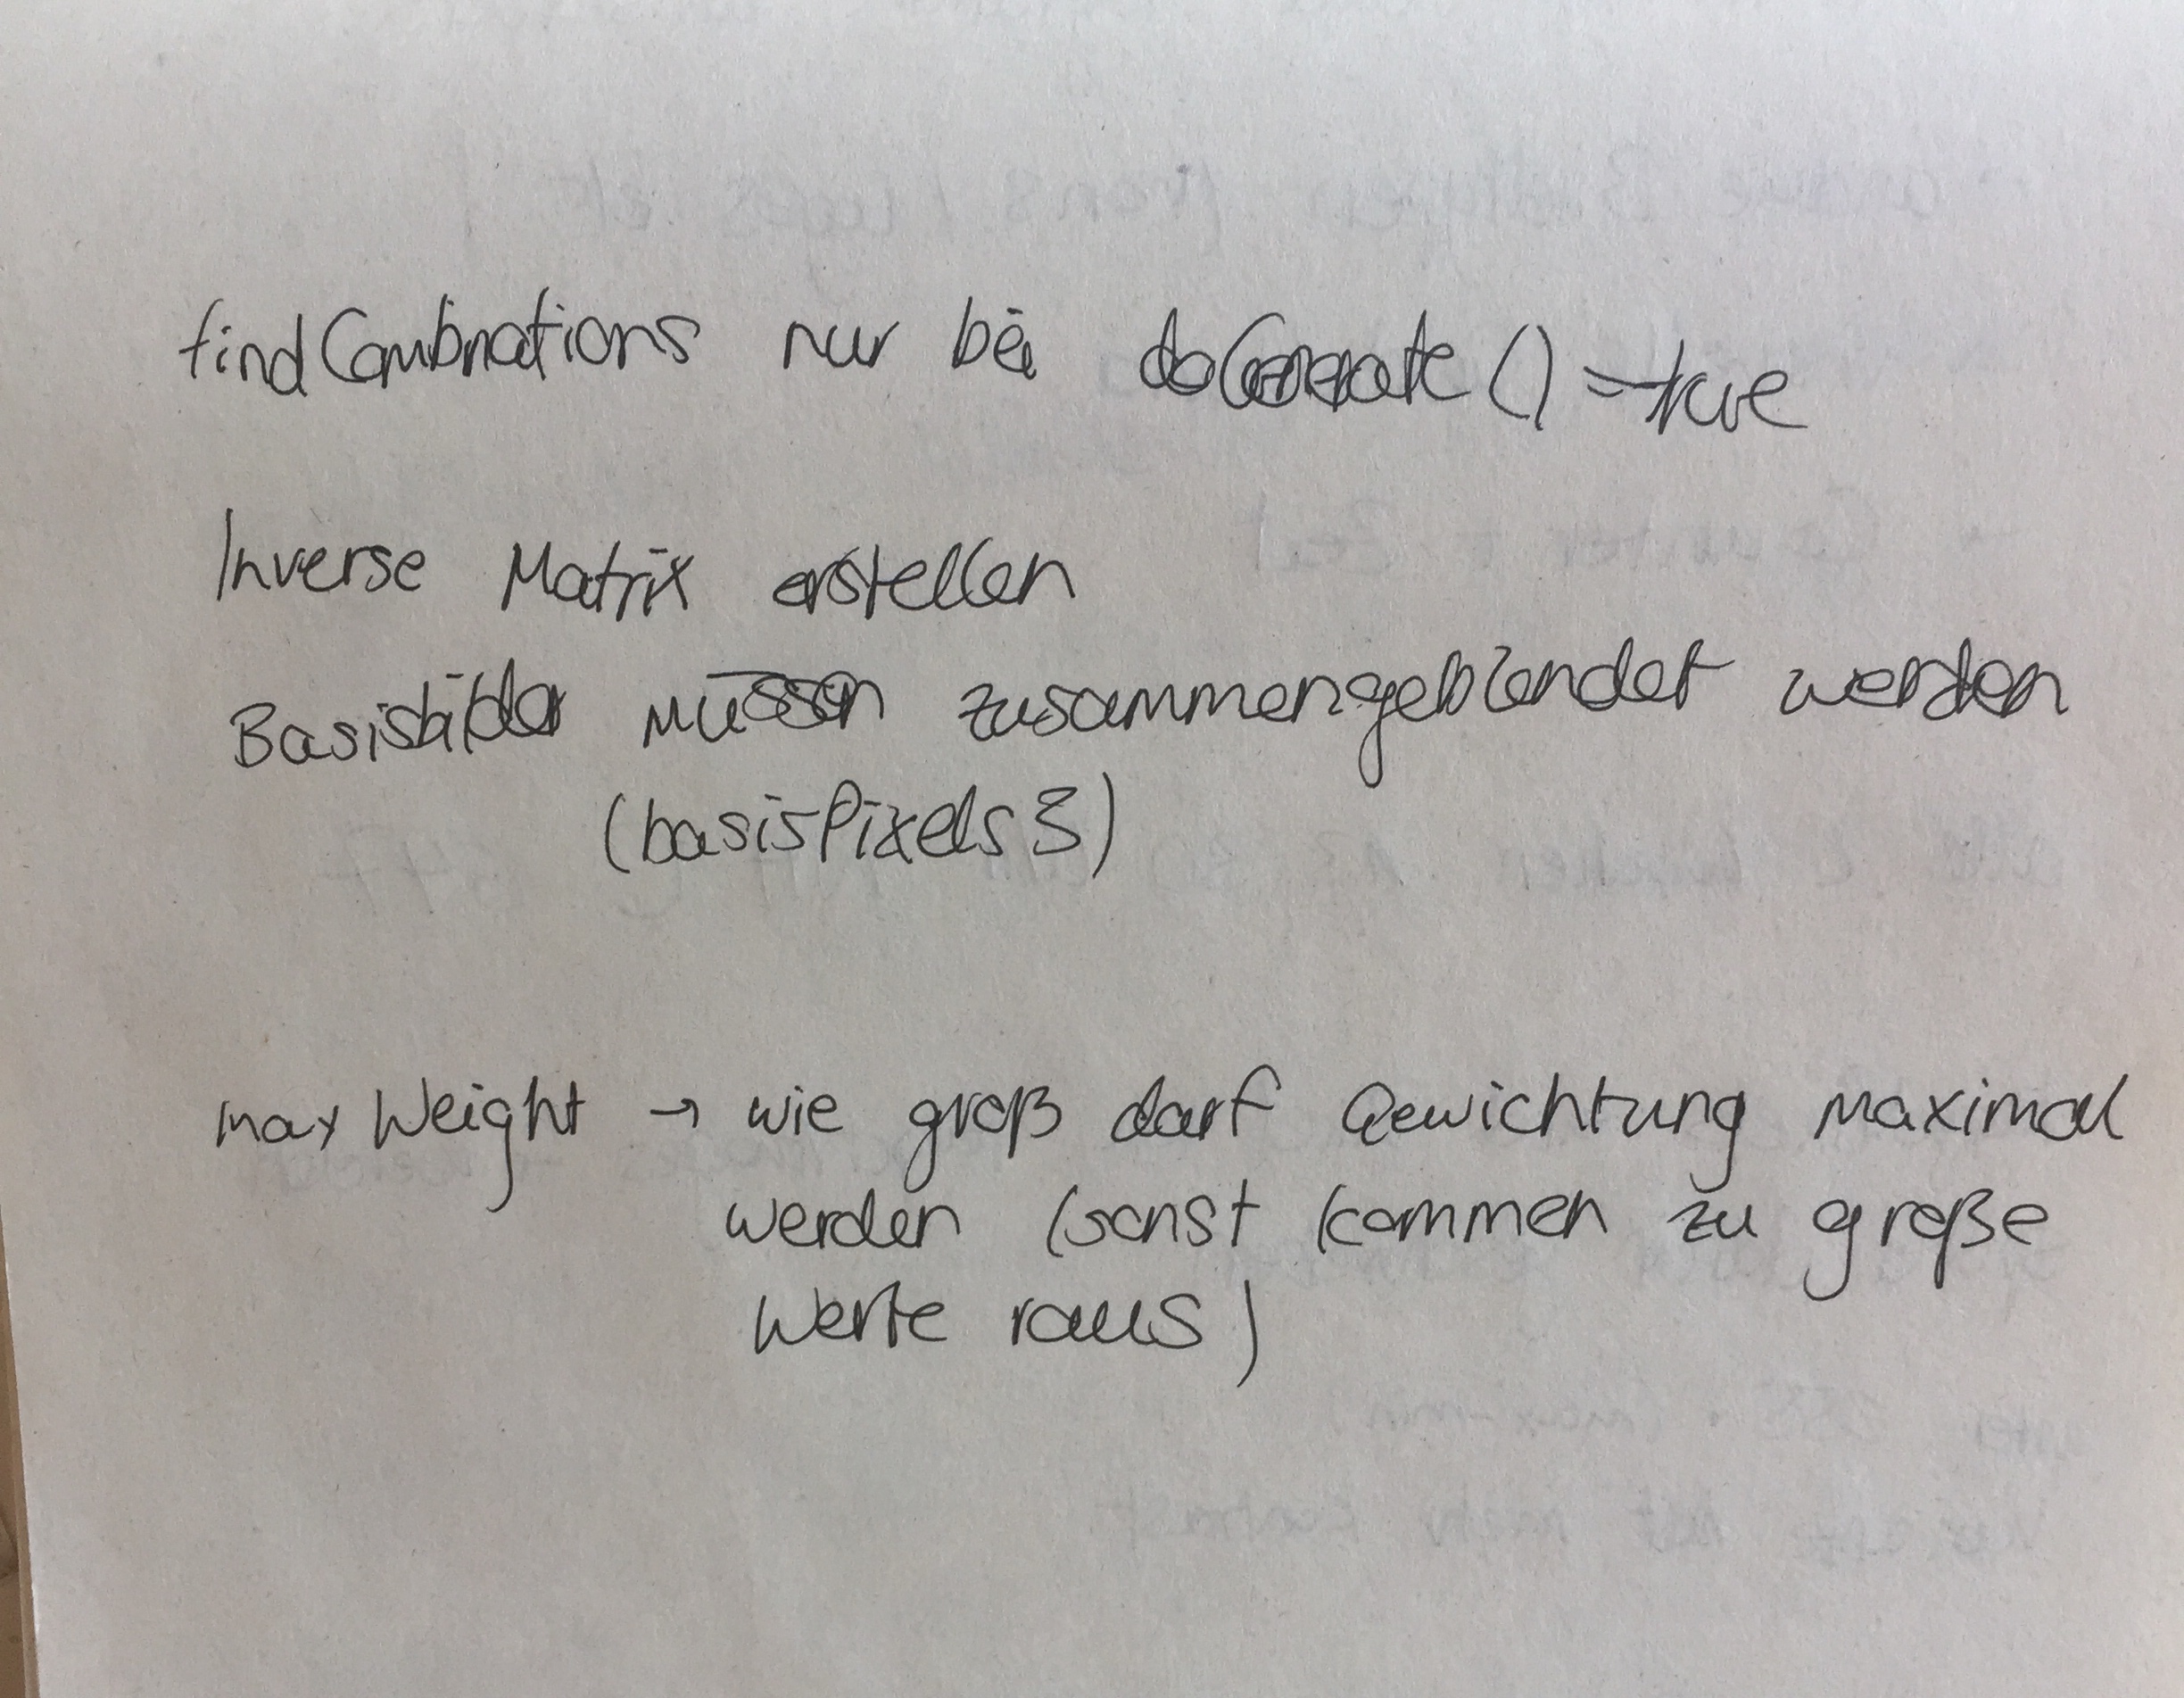 findCombinations nur bei doGenerate() = true
Inverse Matrix erstellen
Basisbilder müssen zusammengeblendet werden
(basisPixels3)
max Weight → wie groß darf Gewichtung maximal
werden (sonst kommen zu große
Werte raus)